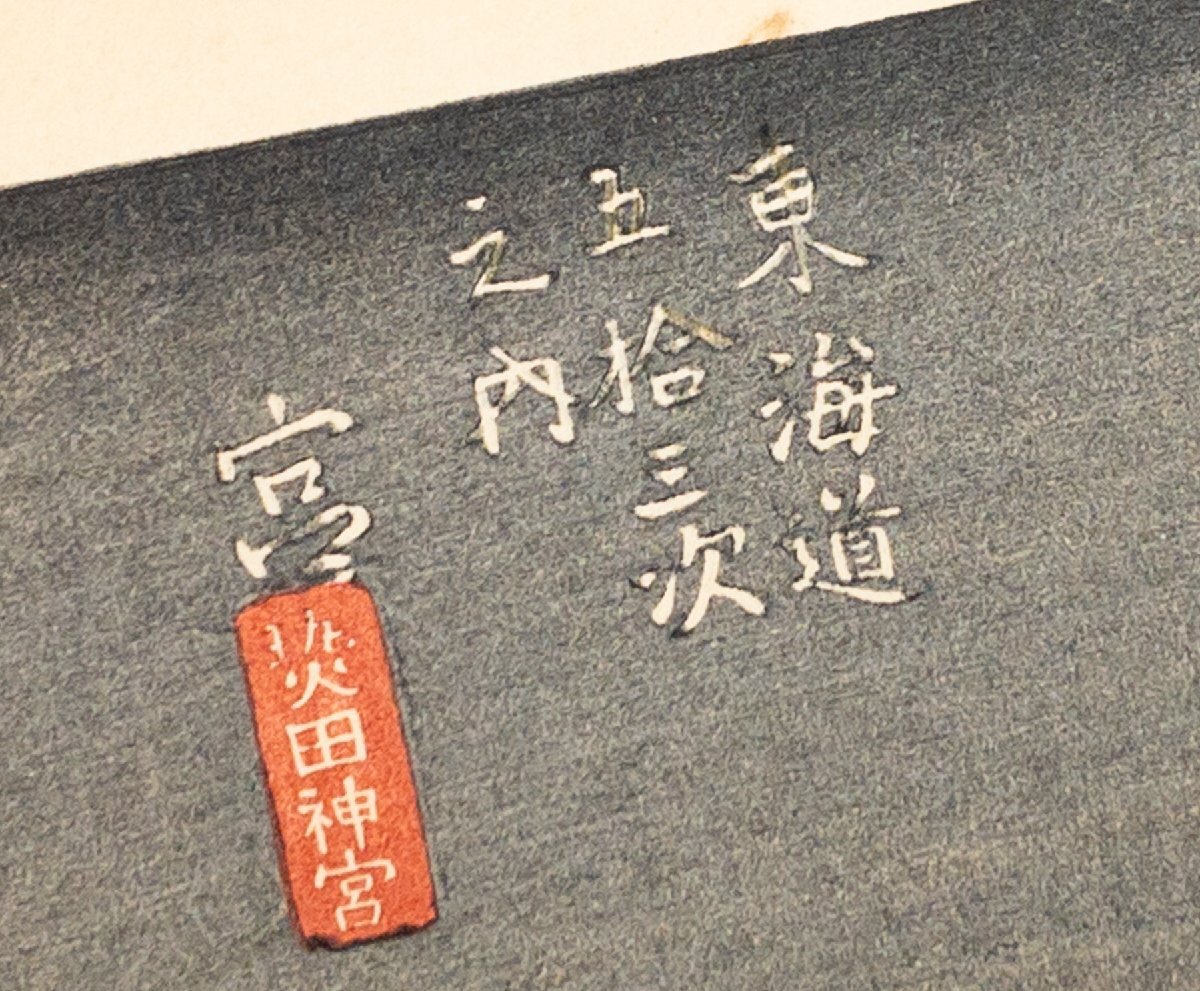 東海道
五拾三次
之內
宮
熱田神宮